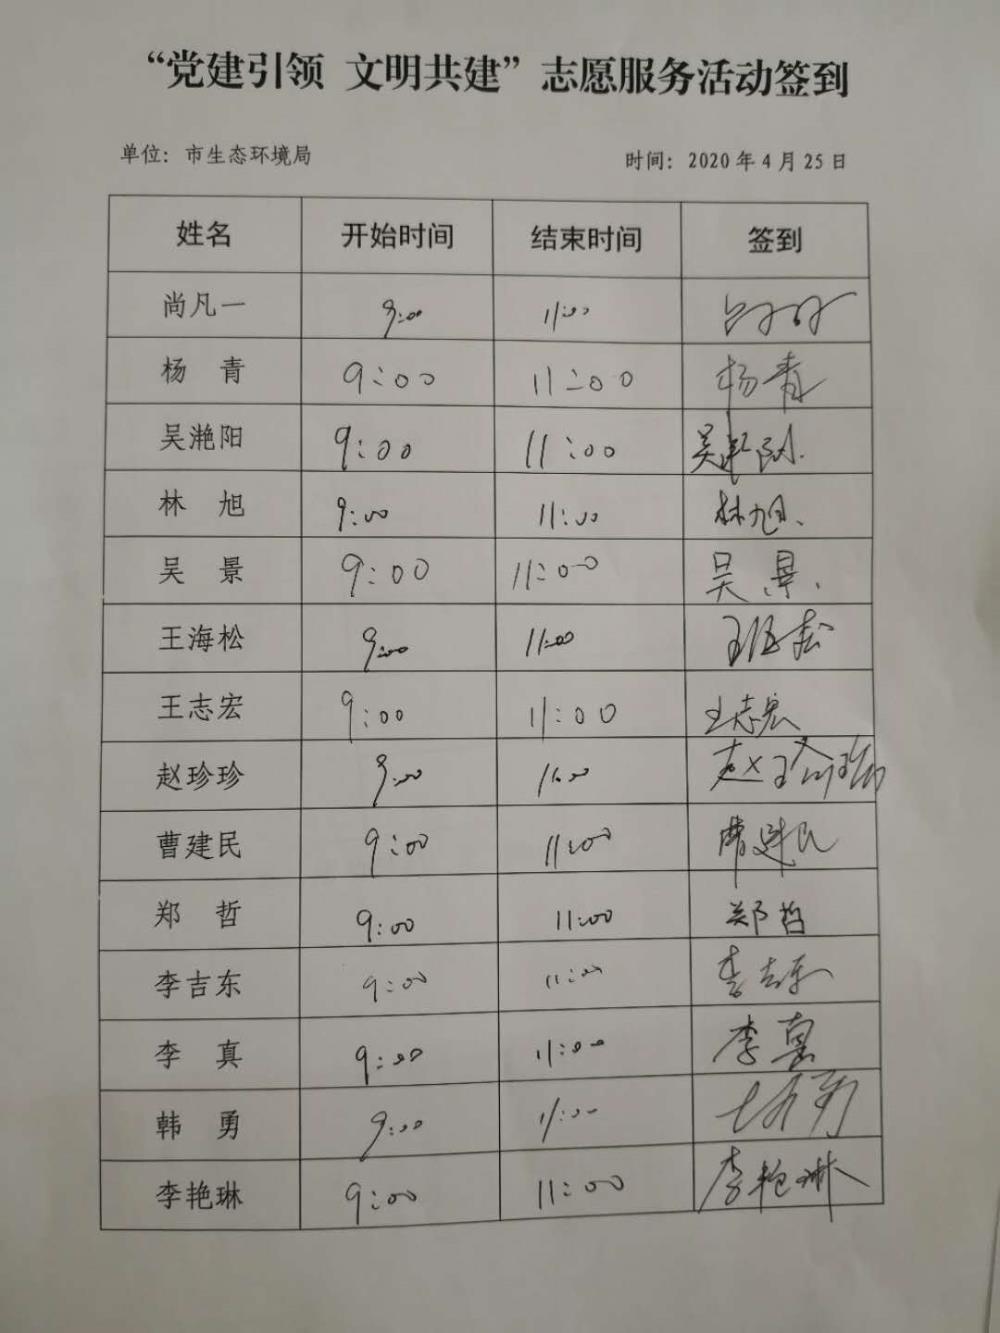 “党建引领 文明共建”志愿服务活动签到
单位：市生态环境局 时间：2020年4月25日
姓名 开始时间 结束时间 签到
尚凡一 9:00 11:00
杨 青 9:00 11:00 杨青
吴滟阳 9:00 11:00 吴滟阳
林 旭 9:00 11:00 林旭
吴 景 9:00 11:00 吴景
王海松 9:00 11:00 王海松
王志宏 9:00 11:00 王志宏
赵珍珍 9:00 11:00 赵珍珍
曹建民 9:00 11:00 曹建民
郑 哲 9:00 11:00 郑哲
李吉东 9:00 11:00 李吉东
李 真 9:00 11:00 李真
韩 勇 9:00 11:00
李艳琳 9:00 11:00 李艳琳